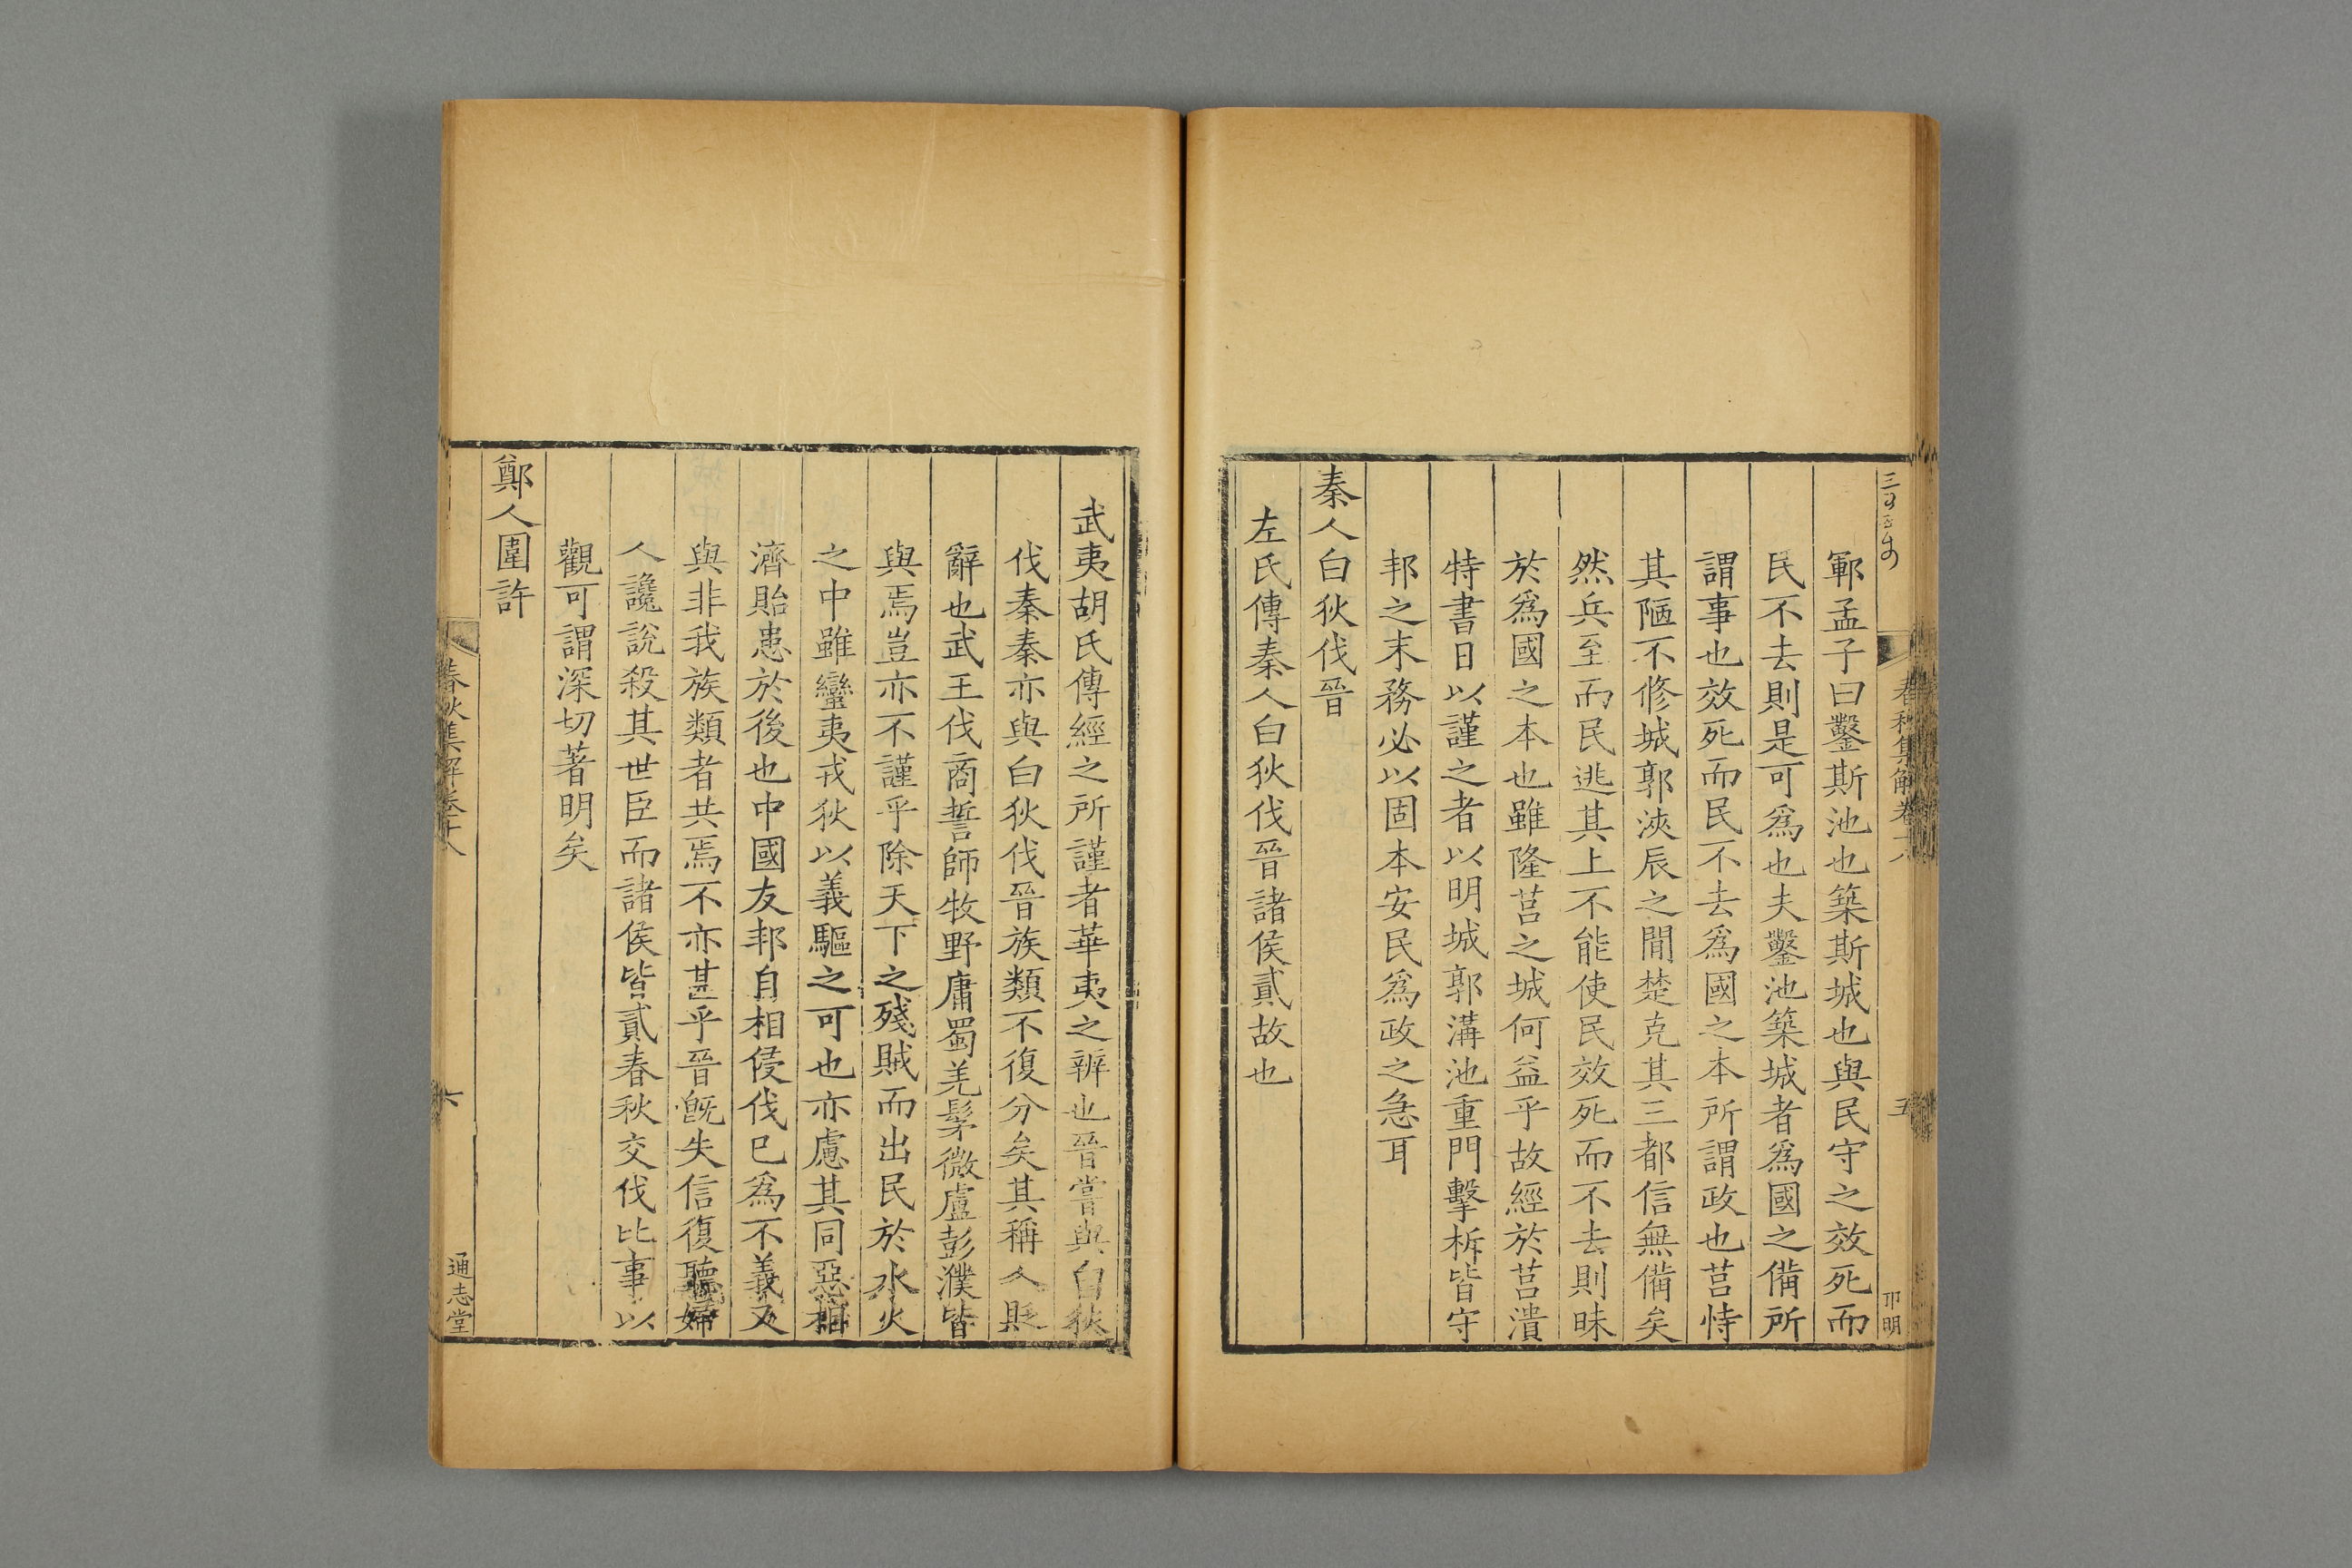 春秋集解卷十八
五
鄆孟子曰鑿斯池也築斯城也與民守之效死而
民不去則是可爲也夫鑿池築城者爲國之備所
謂事也效死而民不去爲國之本所謂政也莒恃
其陋不修城郭浹辰之閒楚克其三都信無備矣
然兵至而民逃其上不能使民效死而不去則昧
於爲國之本也雖隆莒之城何益乎故經於莒潰
特書日以謹之者以明城郭溝池重門擊柝皆守
邦之末務必以固本安民爲政之急耳
秦人白狄伐晉
左氏傳秦人白狄伐晉諸侯貳故也
武夷胡氏傳經之所謹者華夷之辨也晉嘗與白狄
伐秦秦亦與白狄伐晉族類不復分矣其稱人貶
辭也武王伐商誓師牧野庸蜀羌髳微盧彭濮皆
與焉豈亦不謹乎除天下之殘賊而出民於水火
之中雖蠻夷戎狄以義驅之可也亦慮其同惡相
濟貽患於後也中國友邦自相侵伐已爲不義又
與非我族類者共焉不亦甚乎晉旣失信復聽婦
人讒說殺其世臣而諸侯皆貳春秋交伐比事以
觀可謂深切著明矣
鄭人圍許
春秋集解卷十八
六
通志堂